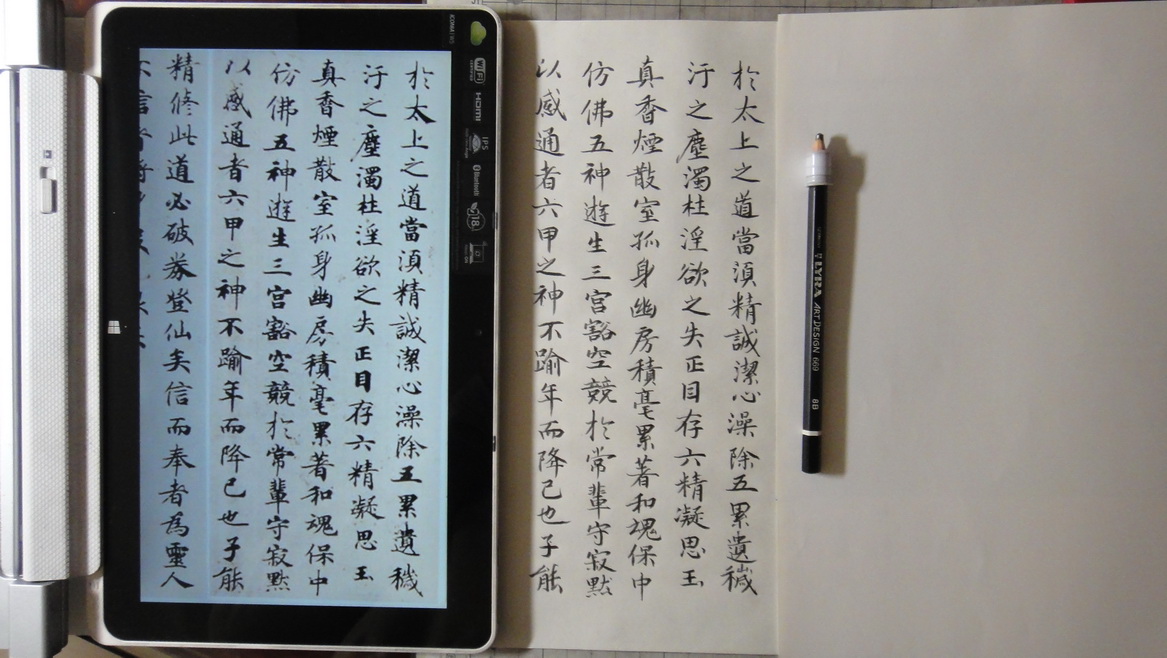 於太上之道當須精誠潔心澡除五累遺穢
汙之塵濁杜淫欲之失正目存六精凝思玉
真香煙散室孤身幽房積毫累著和魂保中
仿佛五神遊生三宮豁空競於常輩守寂默
以感通者六甲之神不踰年而降己也子能
精修此道必破券登仙矣信而奉者為靈人
不信者將
WiFi
HDMI
IPS
Bluetooth
於太上之道當須精誠潔心澡除五累遺穢
汙之塵濁杜淫欲之失正目存六精凝思玉
真香煙散室孤身幽房積毫累著和魂保中
仿佛五神遊生三宮豁空競於常輩守寂默
以感通者六甲之神不踰年而降己也子能
LYRA ART DESIGN 669 8B